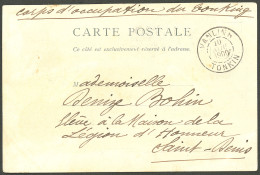 corps d'occupation du Tonking
CARTE POSTALE
Ce côté est exclusivement réservé à l'adresse.
HANLINH
TONKIN
Mademoiselle
Denize Bohin
Elève à la Maison de la
Légion d'Honneur
Saint-Denis